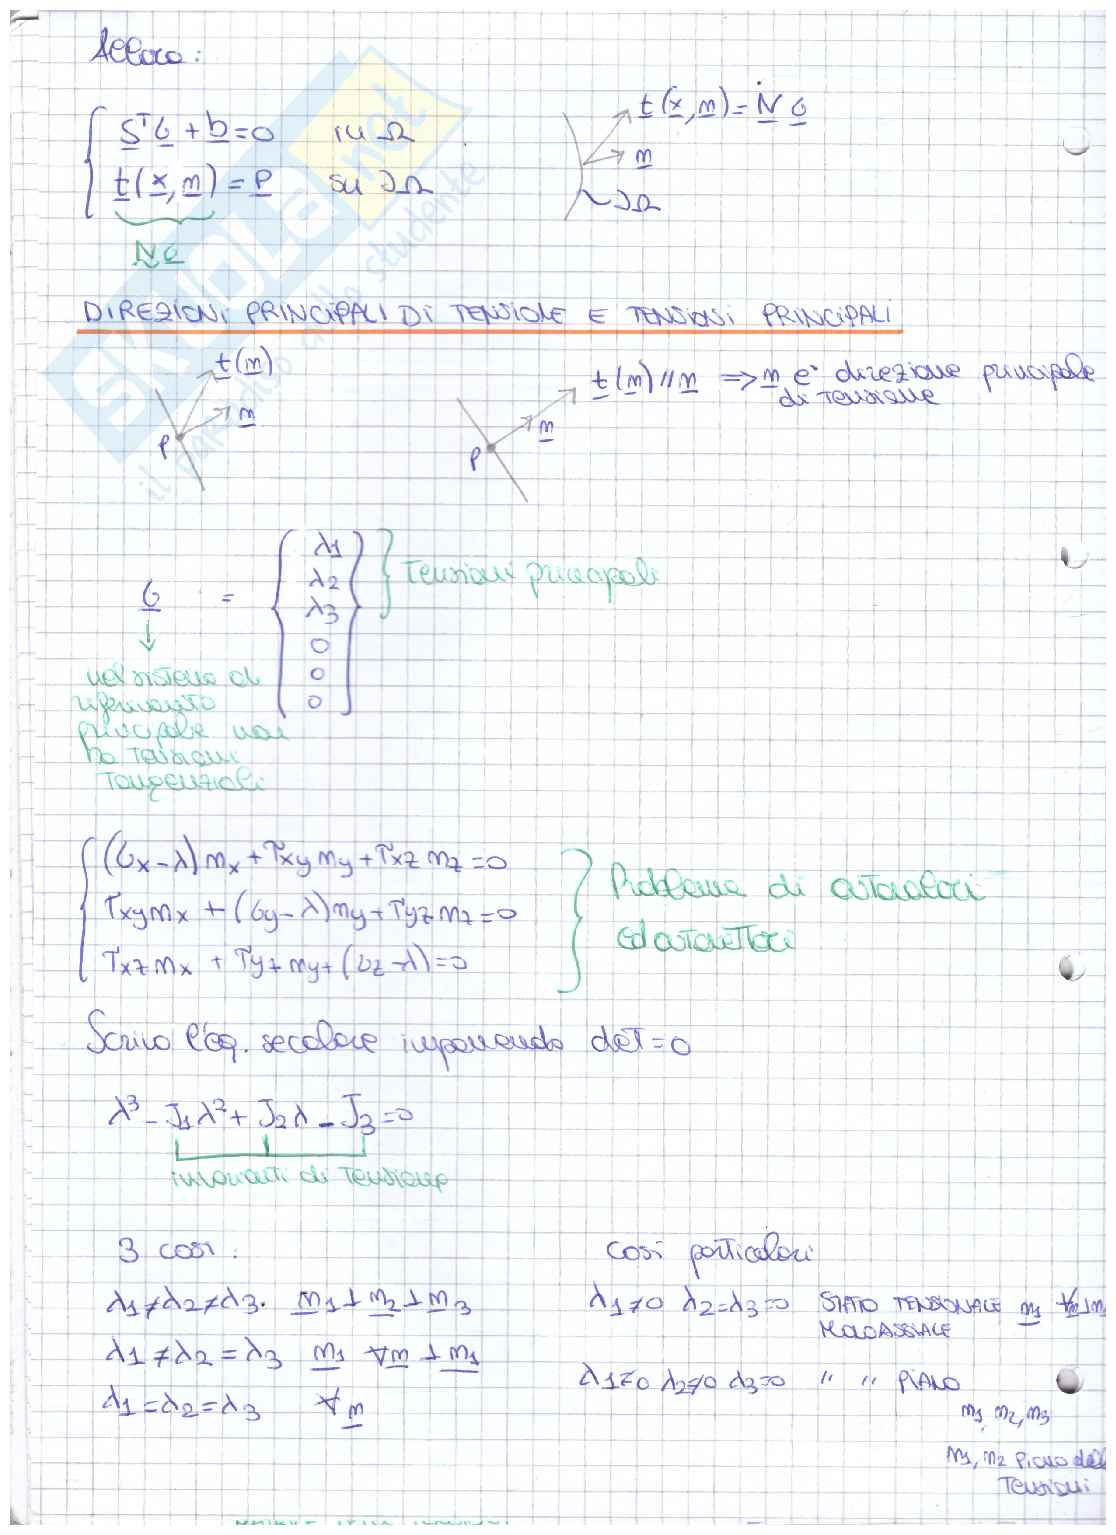 Allora:
S^T σ + b = 0 in Ω
t(x, n) = P su ∂Ω
N σ
t(x, n) = N σ
n
∂Ω
DIREZIONI PRINCIPALI DI TENSIONE E TENSIONI PRINCIPALI
t(n)
n
P
t(n) // n => n è direzione principale
di tensione
n
P
σ = { λ1 λ2 λ3 0 0 0 }
Tensioni principali
nel sistema di
riferimento
principale non
ho tensioni
tangenziali
(σx - λ) nx + τxy ny + τxz nz = 0
τxy nx + (σy - λ) ny + τyz nz = 0
τxz nx + τyz ny + (σz - λ) = 0
Problema di autovalori
ed autovettori
Scrivo l'eq. secolare imponendo det = 0
λ³ - J1 λ² + J2 λ - J3 = 0
invarianti di tensione
3 casi:
λ1 ≠ λ2 ≠ λ3. n1 ⊥ n2 ⊥ n3
λ1 ≠ λ2 = λ3 n1 ∀n ⊥ n1
λ1 = λ2 = λ3 ∀n
Casi particolari
λ1 ≠ 0 λ2 = λ3 = 0 STATO TENSIONALE n1 ∀n ⊥ n
MONOASSIALE
λ1 ≠ 0 λ2 ≠ 0 λ3 = 0 " " PIANO
n1, n2, n3
n1, n2 Piano delle
Tensioni
SKUOLA.net
il paradiso dello studente